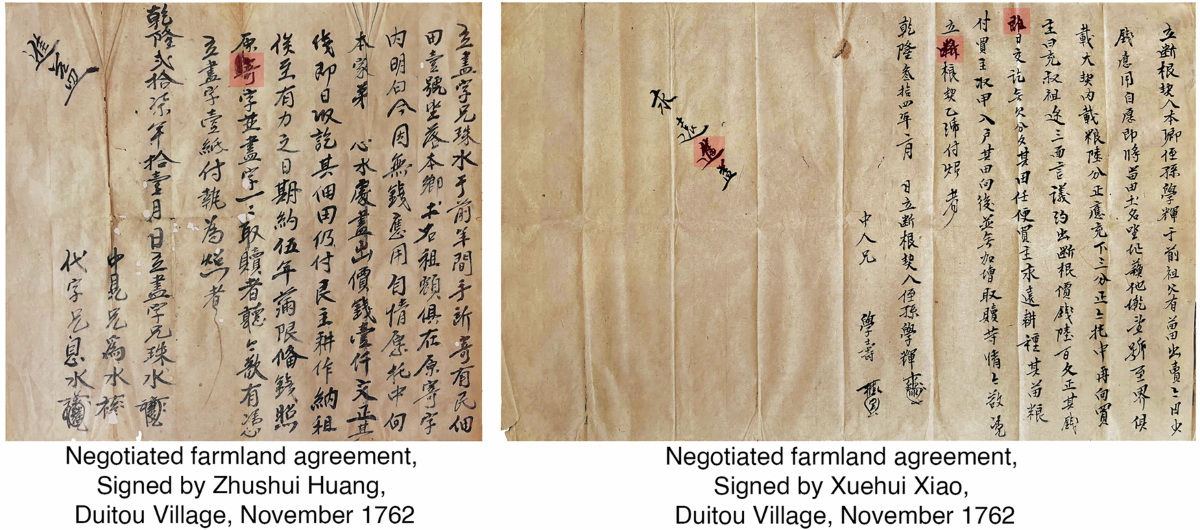 立盡字兄珠水于前年間手所寄有民佃
田壹號坐落本鄉土名祖頭俱在原寄字
內明白今因無錢應用自情愿托中向
本家弟 心水處盡出價錢壹仟文正
錢即日収訖其佃田仍付民主耕作納租
俟至有力之日期約伍年滿限俻錢照
原寄字並盡字一一取贖者聽今欲有憑
立盡字壹紙付執為照者
乾隆貳拾柒年拾壹月日立盡字兄珠水
中見兄為水
代字兄息水
立断根契人本鄉侄孫學輝于前祖父有苗田出賣今因少
錢應用自應即將苗田土名坐址號至界俱
載大契內載粮陸分正應充下三分正今托中再向買
主曰亮叔祖边三面言議約出断根價錢陸百文正其錢
即日交訖無欠分文其田任便買主永遠耕種其苗粮
付買主収甲入戶其田向後並無加增取贖等情今欲憑
立断根契乙紙付炤者
乾隆叁拾四年二月 日立断根契人侄孫學輝
中人兄 學壽
永遠進益
Negotiated farmland agreement,
Signed by Zhushui Huang,
Duitou Village, November 1762
Negotiated farmland agreement,
Signed by Xuehui Xiao,
Duitou Village, November 1762